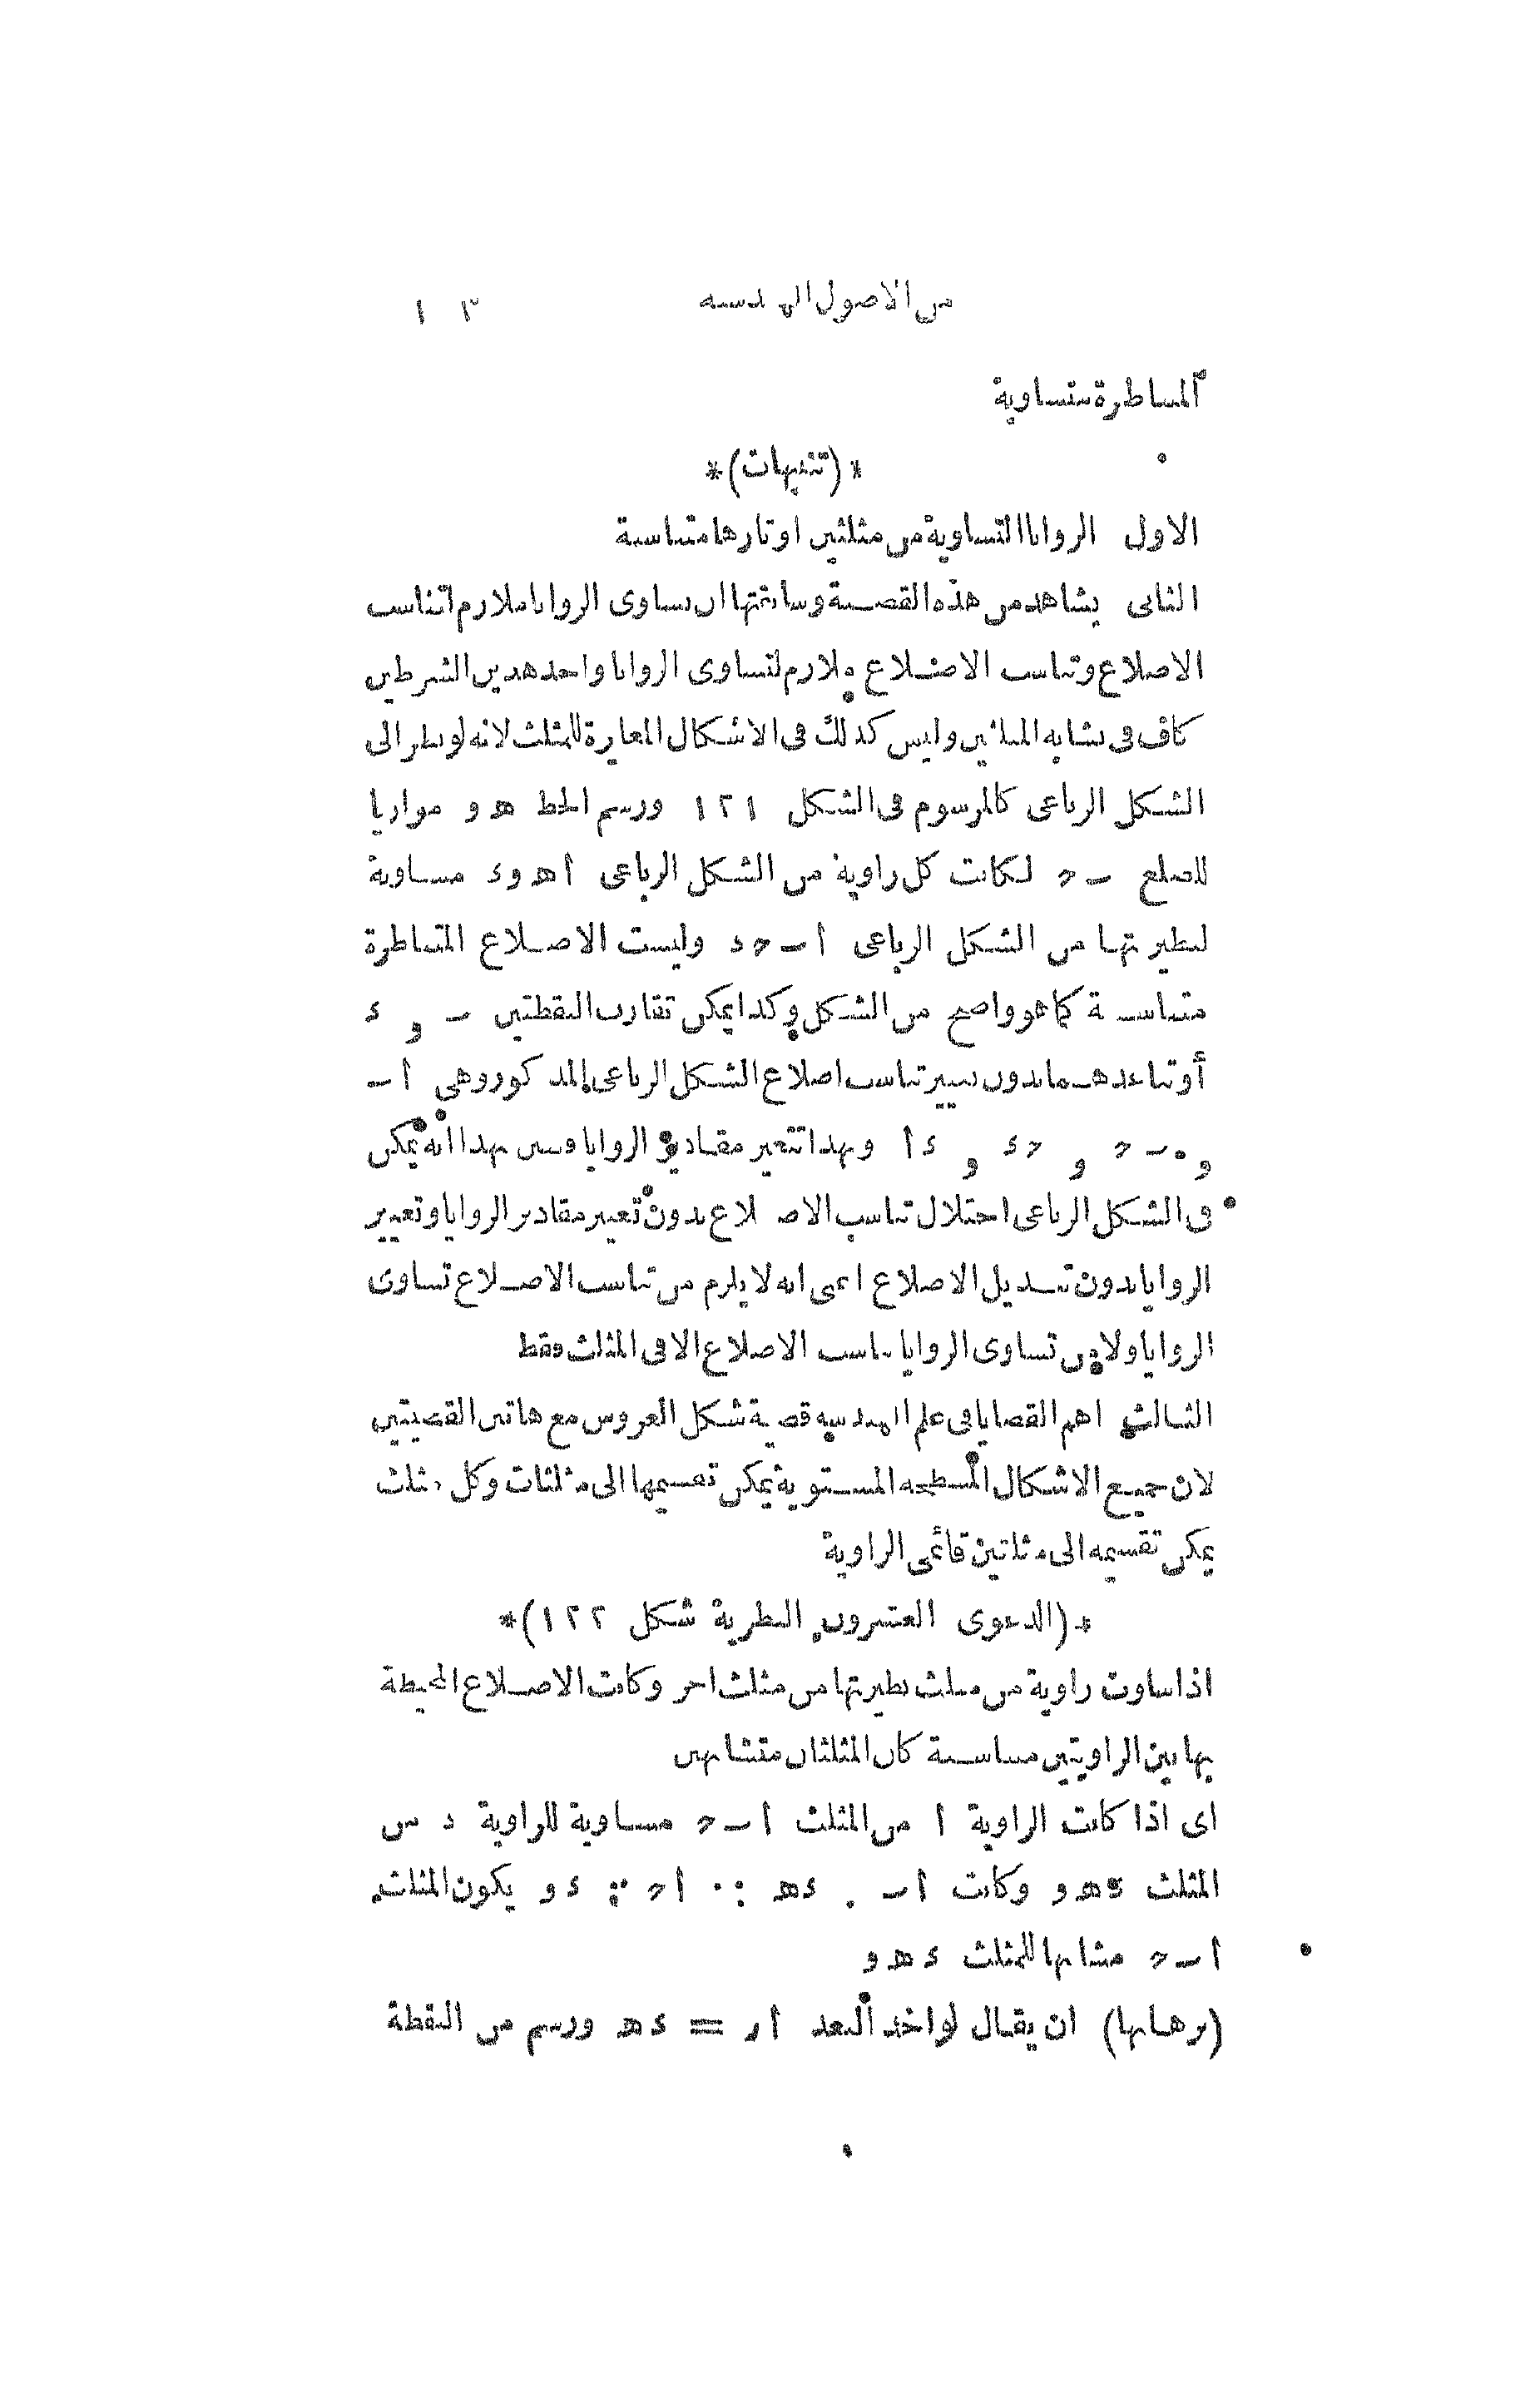 من الاصول الهندسه ١٣
المناظرة متساوية
*(تنبيهات)*
الاول الزوايا المتساوية من مثلثين اوتارها متناسبة
الثانى يشاهد من هذه القضية وسابقتها ان تساوى الزوايا ملازم لتناسب
الاضلاع وتناسب الاضلاع ملازم لتساوى الزوايا واحد هذين الشرطين
كاف فى تشابه المثلثين وليس كذلك فى الاشكال المغايرة للمثلث لانه لو نظر الى
الشكل الرباعى كالمرسوم فى الشكل ١٢١ ورسم الخط هـ و موازيا
للضلع ب ح لكانت كل زاوية من الشكل الرباعى ا هـ و د مساوية
لنظيرتها من الشكل الرباعى ا ب ح د وليست الاضلاع المتناظرة
متناسبة كما هو واضح من الشكل وكذا يمكن تقارب النقطتين ب و د
أو تباعدهما بدون تغيير تناسب اضلاع الشكل الرباعى المذكور وهى ا ب
و ب ح و ح د و د ا وبهذا تتغير مقادير الزوايا وتبين بهذا انه يمكن
فى الشكل الرباعى اختلال تناسب الاضلاع بدون تغيير مقادير الزوايا وتغيير
الزوايا بدون تبديل الاضلاع اعنى انه لا يلزم من تناسب الاضلاع تساوى
الزوايا ولا من تساوى الزوايا تناسب الاضلاع الا فى المثلث فقط
الثالث اهم القضايا فى علم الهندسه قضية شكل العروس مع هاتين القضيتين
لان جميع الاشكال المسطحه المستوية يمكن تقسيمها الى مثلثات وكل مثلث
يمكن تقسيمه الى مثلثين قائمى الزاوية
*(الدعوى العشرون النظرية شكل ١٢٢)*
اذا ساوت زاوية من مثلث نظيرتها من مثلث اخر وكانت الاضلاع المحيطة
بهاتين الزاويتين متناسبة كان المثلثان متشابهين
اى اذا كانت الزاوية ا من المثلث ا ب ح مساوية للزاوية د من
المثلث د هـ و وكانت ا ب : د هـ :: ا ح : د و يكون المثلث
ا ب ح مشابها للمثلث د هـ و
(برهانها) ان يقال لو اخذ البعد ا ر = د هـ ورسم من النقطة